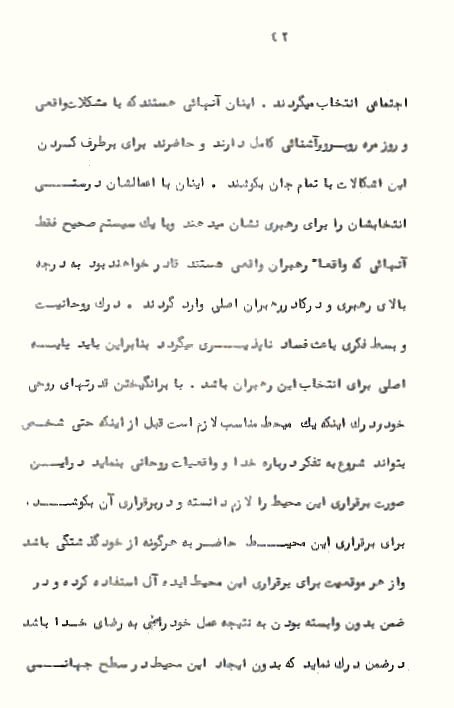 ٤٢
اجتماعی انتخاب میگردند . اینان آنهائی هستند که با مشکلات واقعی
و روز مره روبرو و آشنائی کامل دارند و حاضرند برای برطرف کردن
این اشکالات با تمام جان بکوشند . اینان با اعمالشان درستی
انتخابشان را برای رهبری نشان میدهند وبا یك سیستم صحیح فقط
آنهائی که واقعاً رهبران واقعی هستند قادر خواهند بود به درجه
بالای رهبری و درکادر رهبران اصلی وارد گردند . درك روحانیت
و بسط فکری باعث فساد ناپذیری میگردد بنابراین باید پایه
اصلی برای انتخاب این رهبران باشد . با برانگیختن قدرتهای روحی
خود و درك اینکه یك میحط مناسب لازم است قبل از اینکه حتی شخصی
بتواند شروع به تفکر درباره خدا و واقعیات روحانی بنماید دراین
صورت برقراری این محیط را لازم دانسته و دربرقراری آن بکوشد .
برای برقراری این محیط حاضر به هرگونه از خودگذشتگی باشد
واز هر موقعیت برای برقراری این محیط ایده آل استفاده کرده و در
ضمن بدون وابسته بودن به نتیجه عمل خود راضی به رضای خدا باشد
درضمن درك نماید که بدون ایجاد این محیط در سطح جهانی